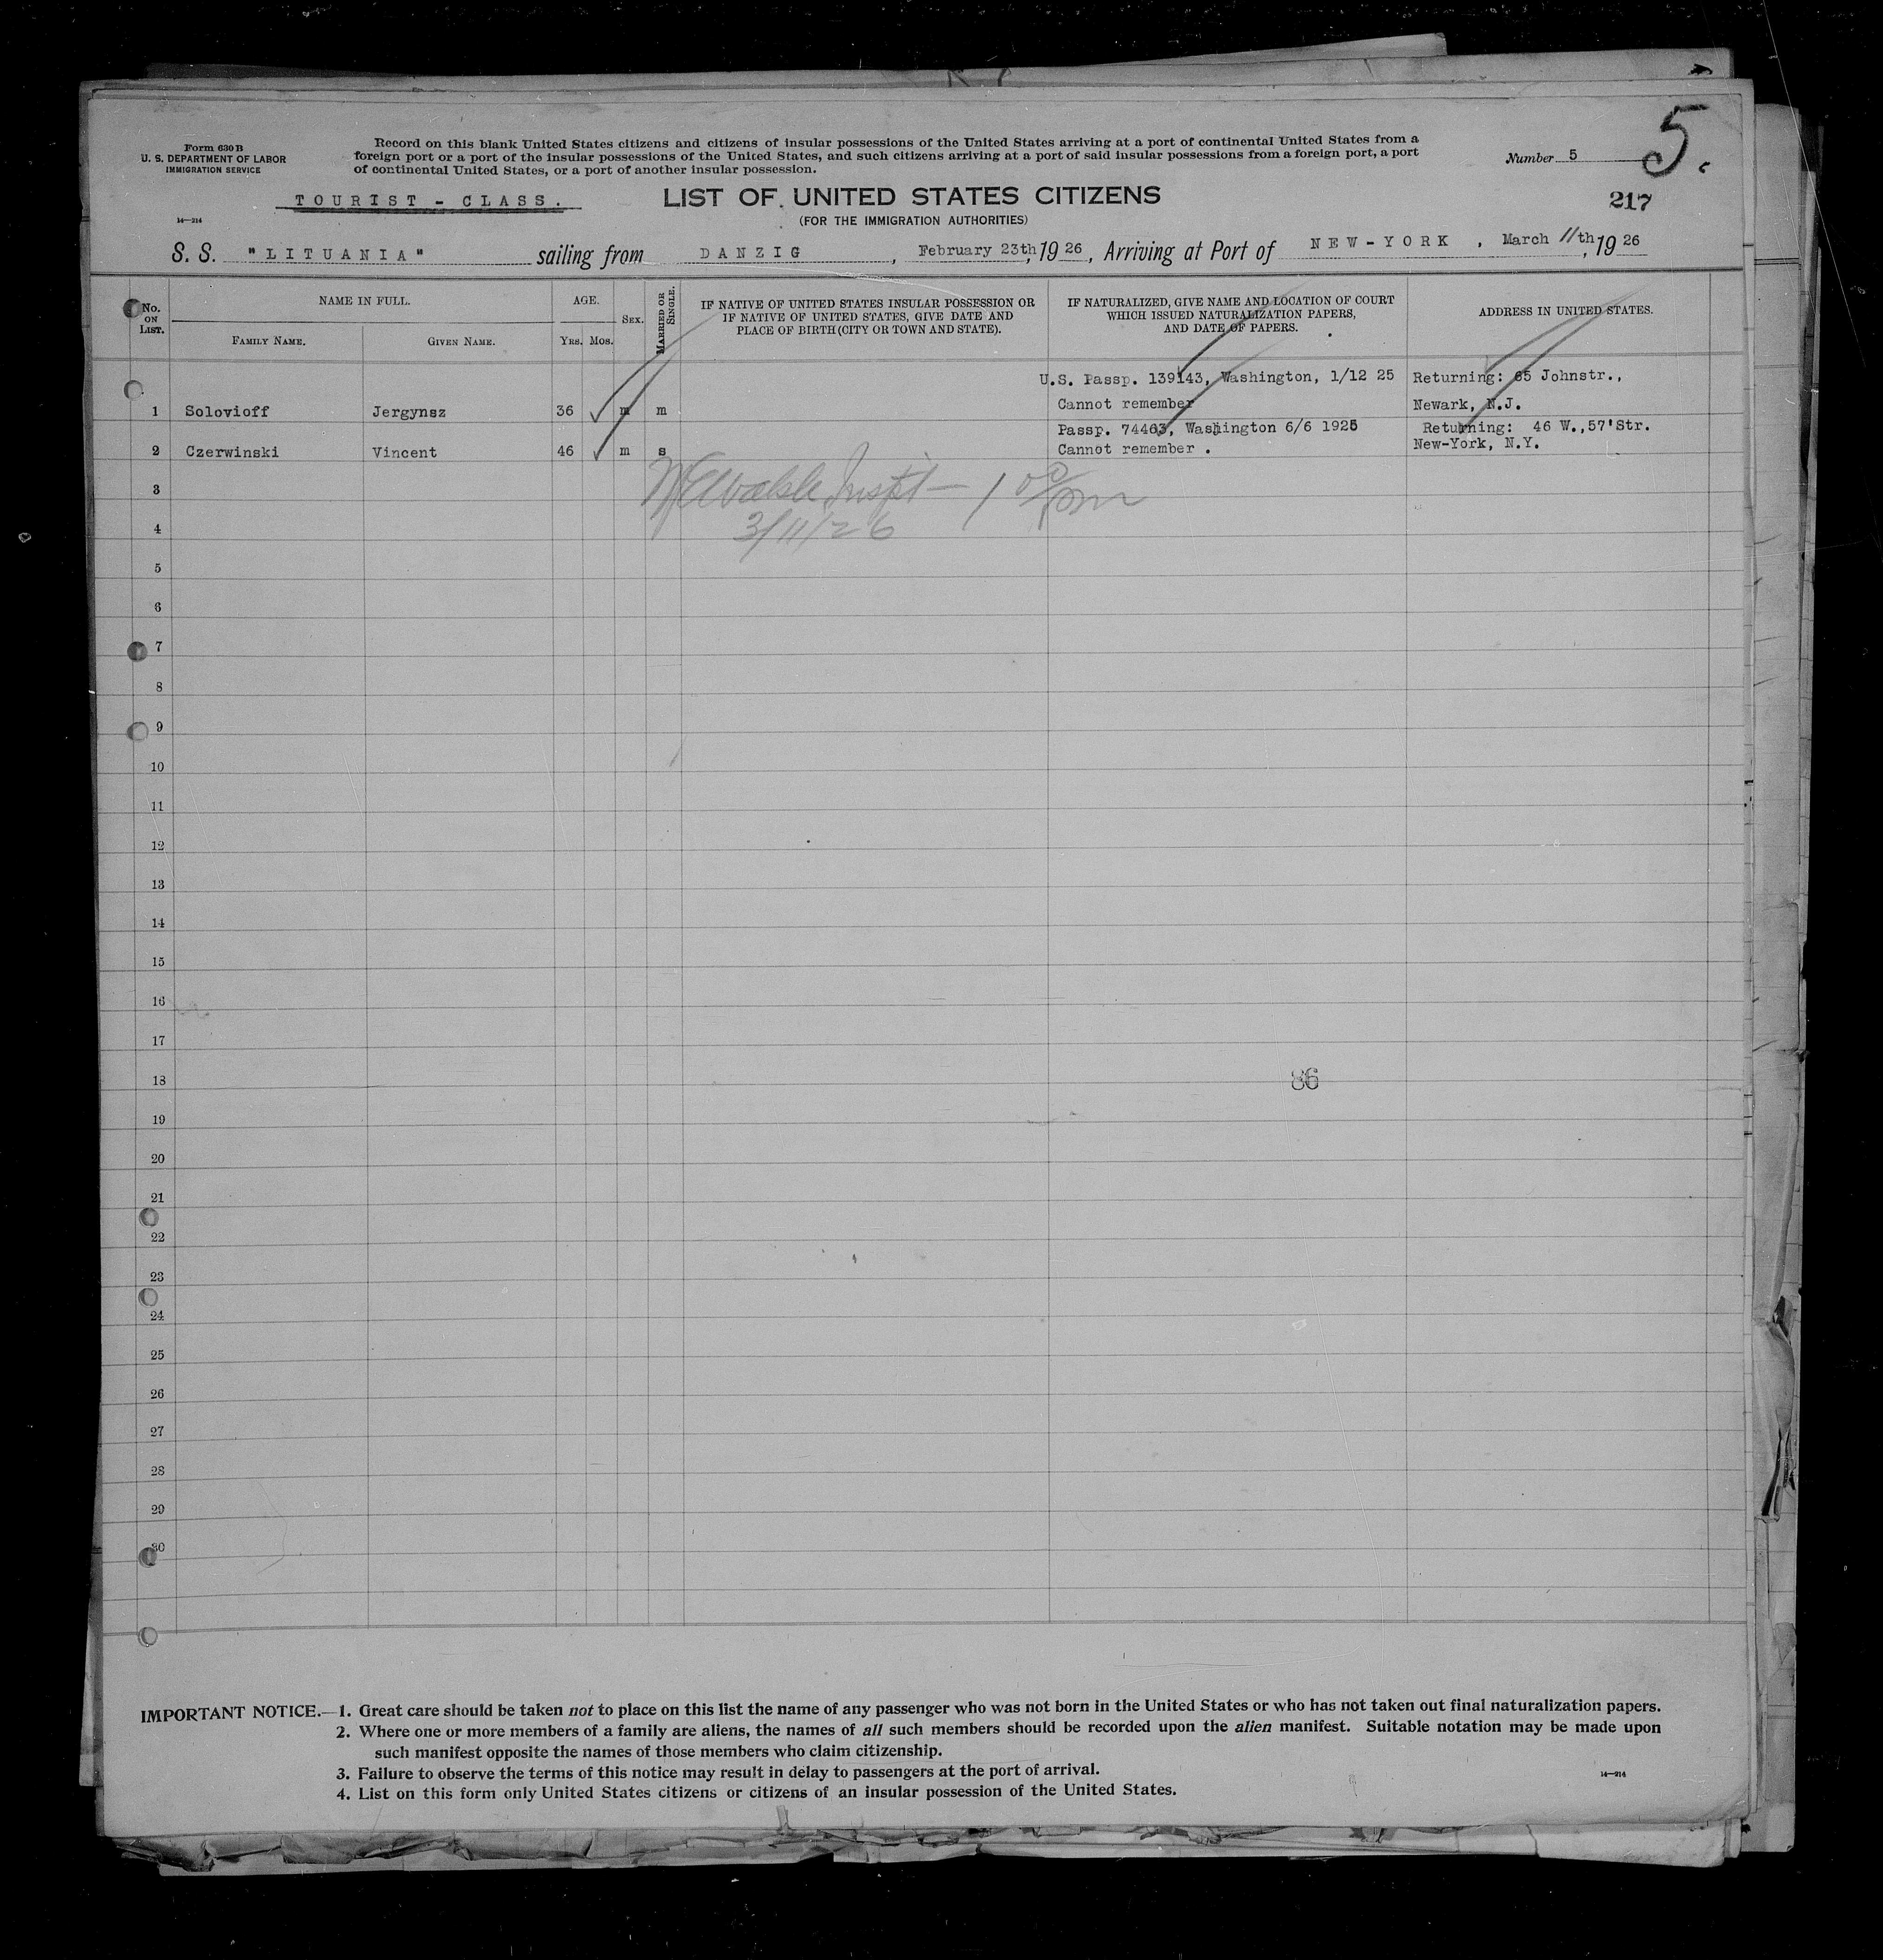 Form 630 B
U. S. DEPARTMENT OF LABOR
IMMIGRATION SERVICE
Record on this blank United States citizens and citizens of insular possessions of the United States arriving at a port of continental United States from a
foreign port or a port of the insular possessions of the United States, and such citizens arriving at a port of said insular possessions from a foreign port, a port
of continental United States, or a port of another insular possession.
Number 5
5.
TOURIST - CLASS.
LIST OF UNITED STATES CITIZENS
217
14—214
(FOR THE IMMIGRATION AUTHORITIES)
S. S. "LITUANIA" sailing from DANZIG, February 23th, 1926, Arriving at Port of NEW-YORK, March 11th, 1926
No. ON LIST.
NAME IN FULL.
FAMILY NAME.
GIVEN NAME.
AGE.
YRS. MOS.
SEX.
MARRIED OR SINGLE.
IF NATIVE OF UNITED STATES INSULAR POSSESSION OR
IF NATIVE OF UNITED STATES, GIVE DATE AND
PLACE OF BIRTH (CITY OR TOWN AND STATE).
IF NATURALIZED, GIVE NAME AND LOCATION OF COURT
WHICH ISSUED NATURALIZATION PAPERS,
AND DATE OF PAPERS.
ADDRESS IN UNITED STATES.
U.S. Passp. 139143, Washington, 1/12 25 Returning: 65 Johnstr.,
1 Solovioff Jergynsz 36 m m Cannot remember Newark, N.J.
Passp. 74463, Washington 6/6 1925 Returning: 46 W.,57'Str.
2 Czerwinski Vincent 46 m s Cannot remember. New-York, N.Y.
3
3/11/26
4
5
6
7
8
9
10
11
12
13
14
15
16
17
18
86
19
20
21
22
23
24
25
26
27
28
29
30
IMPORTANT NOTICE.—1. Great care should be taken not to place on this list the name of any passenger who was not born in the United States or who has not taken out final naturalization papers.
2. Where one or more members of a family are aliens, the names of all such members should be recorded upon the alien manifest. Suitable notation may be made upon
such manifest opposite the names of those members who claim citizenship.
3. Failure to observe the terms of this notice may result in delay to passengers at the port of arrival.
14—214
4. List on this form only United States citizens or citizens of an insular possession of the United States.